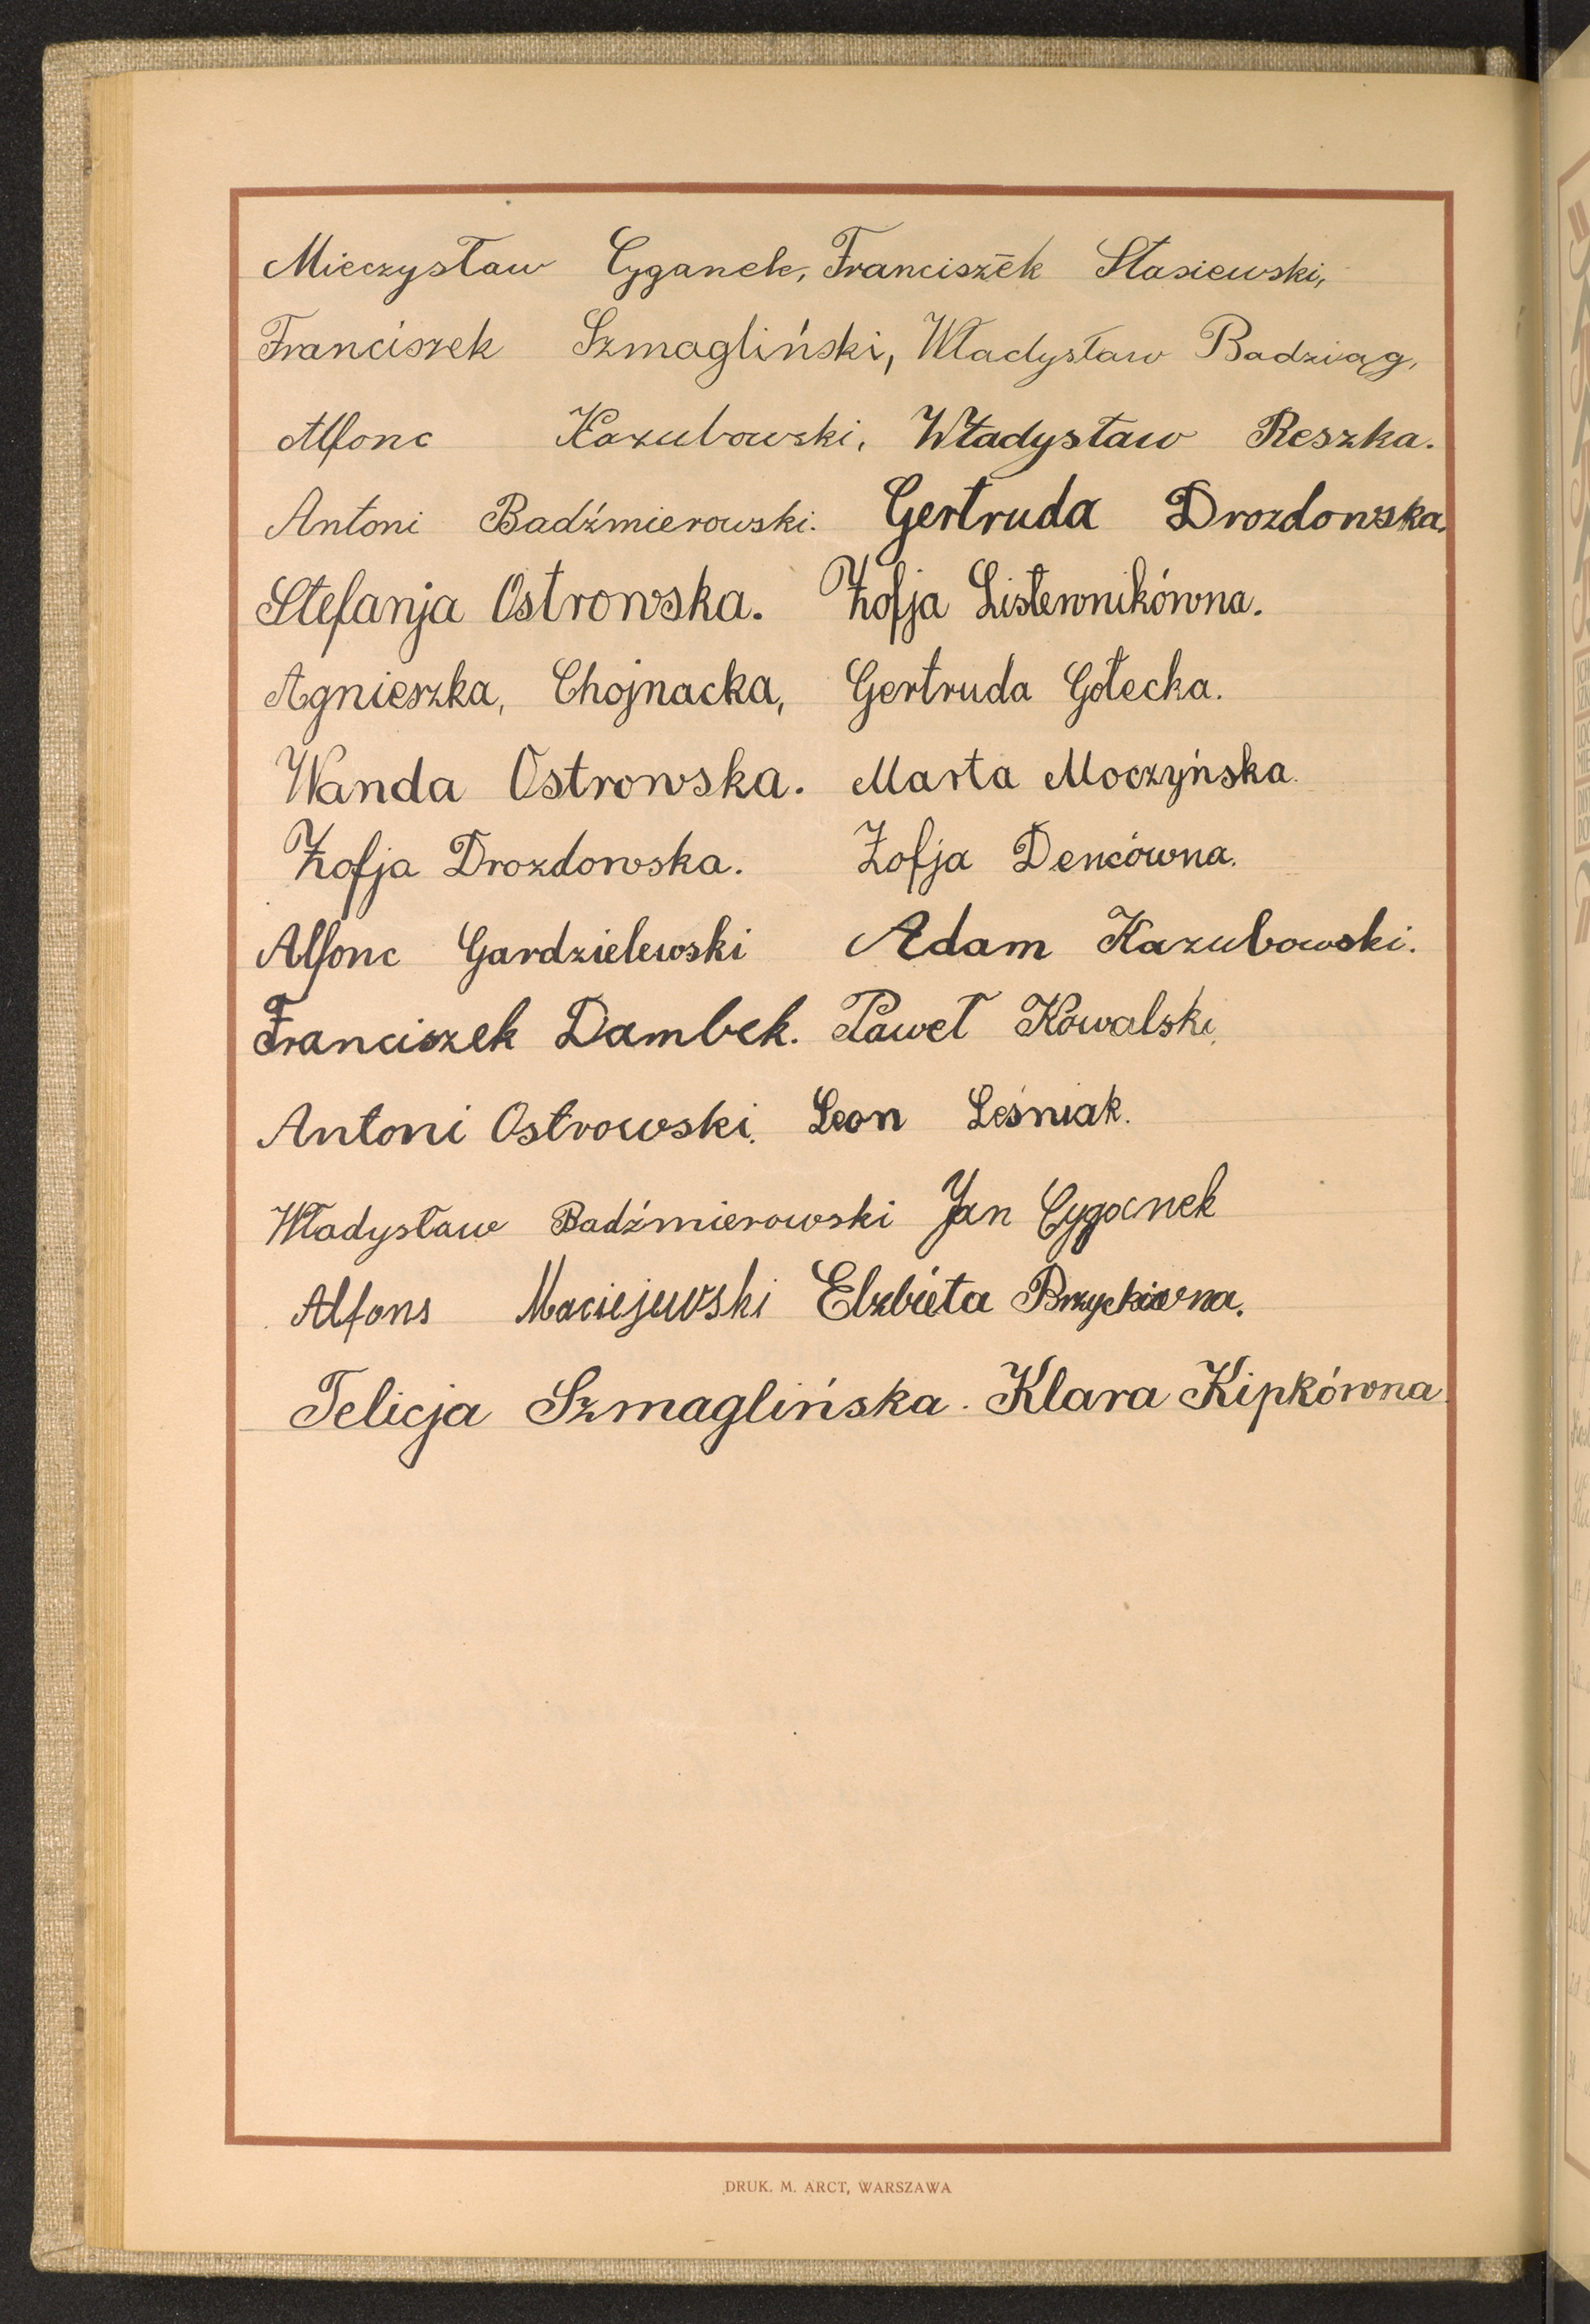 Mieczysław Cyganek, Franciszek Stasiewski,
Franciszek Szmagliński, Władysław Badziąg,
Alfonc Kazubowski, Władysław Reszka.
Antoni Badźmierowski. Gertruda Drozdowska.
Stefanja Ostrowska. Zofja Listewnikówna.
Agnieszka, Chojnacka, Gertruda Gołecka.
Wanda Ostrowska. Marta Moczyńska.
Zofja Drozdowska. Zofja Dencówna.
Alfonc Gardzielewski Adam Kazubowski.
Franciszek Dambek. Paweł Kowalski,
Antoni Ostrowski. Leon Leśniak.
Władysław Badźmierowski Jan Cyganek
Alfons Maciejewski Elżbieta
Felicja Szmaglińska. Klara Kipkówna.
DRUK. M. ARCT, WARSZAWA